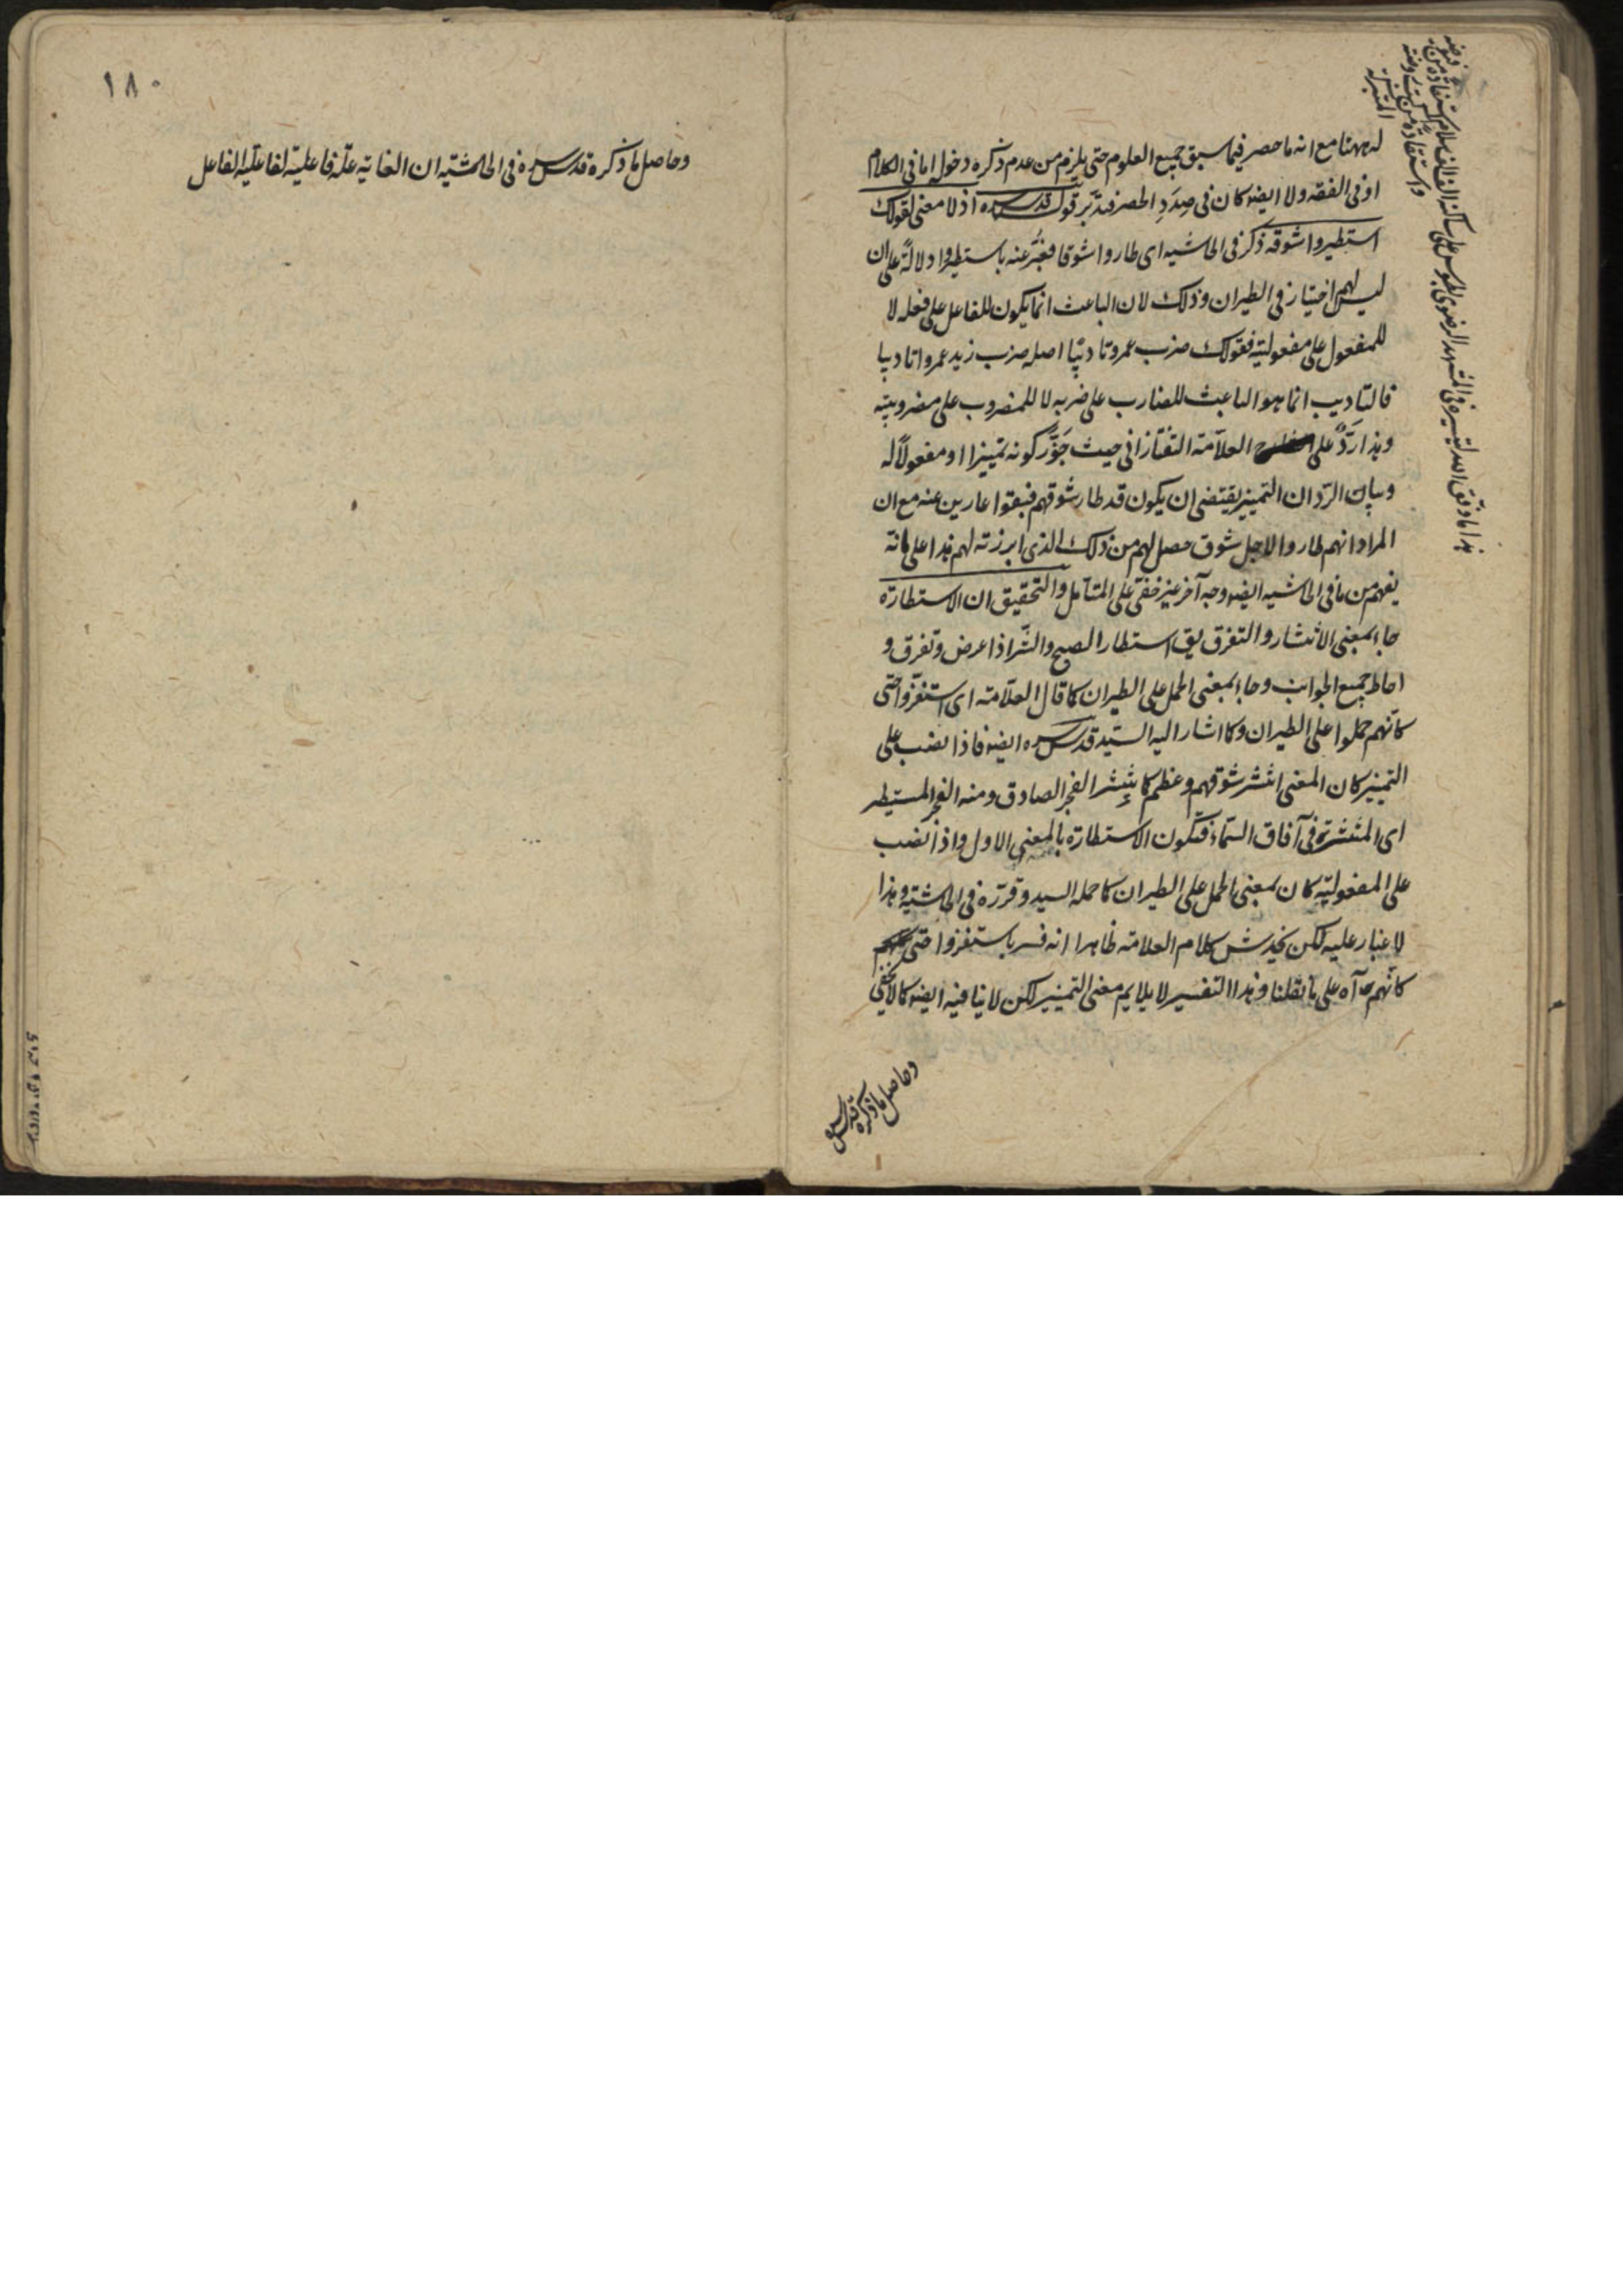 له ههنا مع انه ما حصر فيما سبق جميع العلوم حتى يلزم من عدم ذكره دخوله اما فى الكلام
او فى الفقه ولا ايضه كان فى صدد الحصر فتدبر قوله قدس سره اذ لا معنى لقولك
استطيروا شوقه ذكر فى الحاشيه اى طاروا شوقا فعبّر عنه باستطيروا دلالةً على ان
ليس لهم اختيار فى الطيران وذلك لان الباعث انما يكون للفاعل على فعله لا
للمفعول على مفعوليته فقولك ضرب عمرو تاديبًا اصله ضرب زيد عمروا تاديبا
فالتاديب انما هو الباعث للضارب على ضربه لا للمضروب على مضروبيته
وهذا ردٌ على العلّامة التفتازانى حيث جَوَّز كونه تمييزا او مفعولًا له
وبيان الرّد ان التمييز يقتضى ان يكون قد طار شوقهم فبقوا عارين عنه مع ان
المراد انهم طاروا لاجل شوق حصل لهم من ذلك الذى ابرزته لهم هذا على انه
يفهم من ما فى الحاشيه ايضه وجه آخر غير خفىّ على المتامل والتحقيق ان الاستطارة
جاء بمعنى الانتشار والتفرق يق استطار الصبح والشّر اذا عرض وتفرق و
احاط جميع الجوانب وجاء بمعنى الحمل على الطيران كما قال العلّامة اى استفزّوا حتى
كانّهم حملوا على الطيران وكما اشار اليه السيّد قدس سره ايضه فاذا نصب على
التمييز كان المعنى انتشر شوقهم وعظم كما ينتشر الفجر الصادق ومنه الفجر المستطير
اى المنتشرة فى آفاق السّماء فتكون الاستطارة بالمعنى الاول واذا نصب
على المفعوليّة كان بمعنى الحمل على الطيران كما حمله السيد وقرّره فى الحاشيّة وهذا
لا غبار عليه لكن يخدش كلام العلامة ظاهرا انه فسر باستفزوا حتى
كانّهم آه على ما نقلنا وهذا التفسير لا يلايم معنى التمييز لكن لا ينافيه ايضه كما لا يخفى
وحاصل ما ذكره قدس سره
هذا ما وفق الله لتيسيره فى المشهد الرضوى على ساكنه الف الف سلام
١٨٠
وحاصل ما ذكره قدس سره فى الحاشيّة ان الغاية علّة فاعليّة لفاعليّة الفاعل